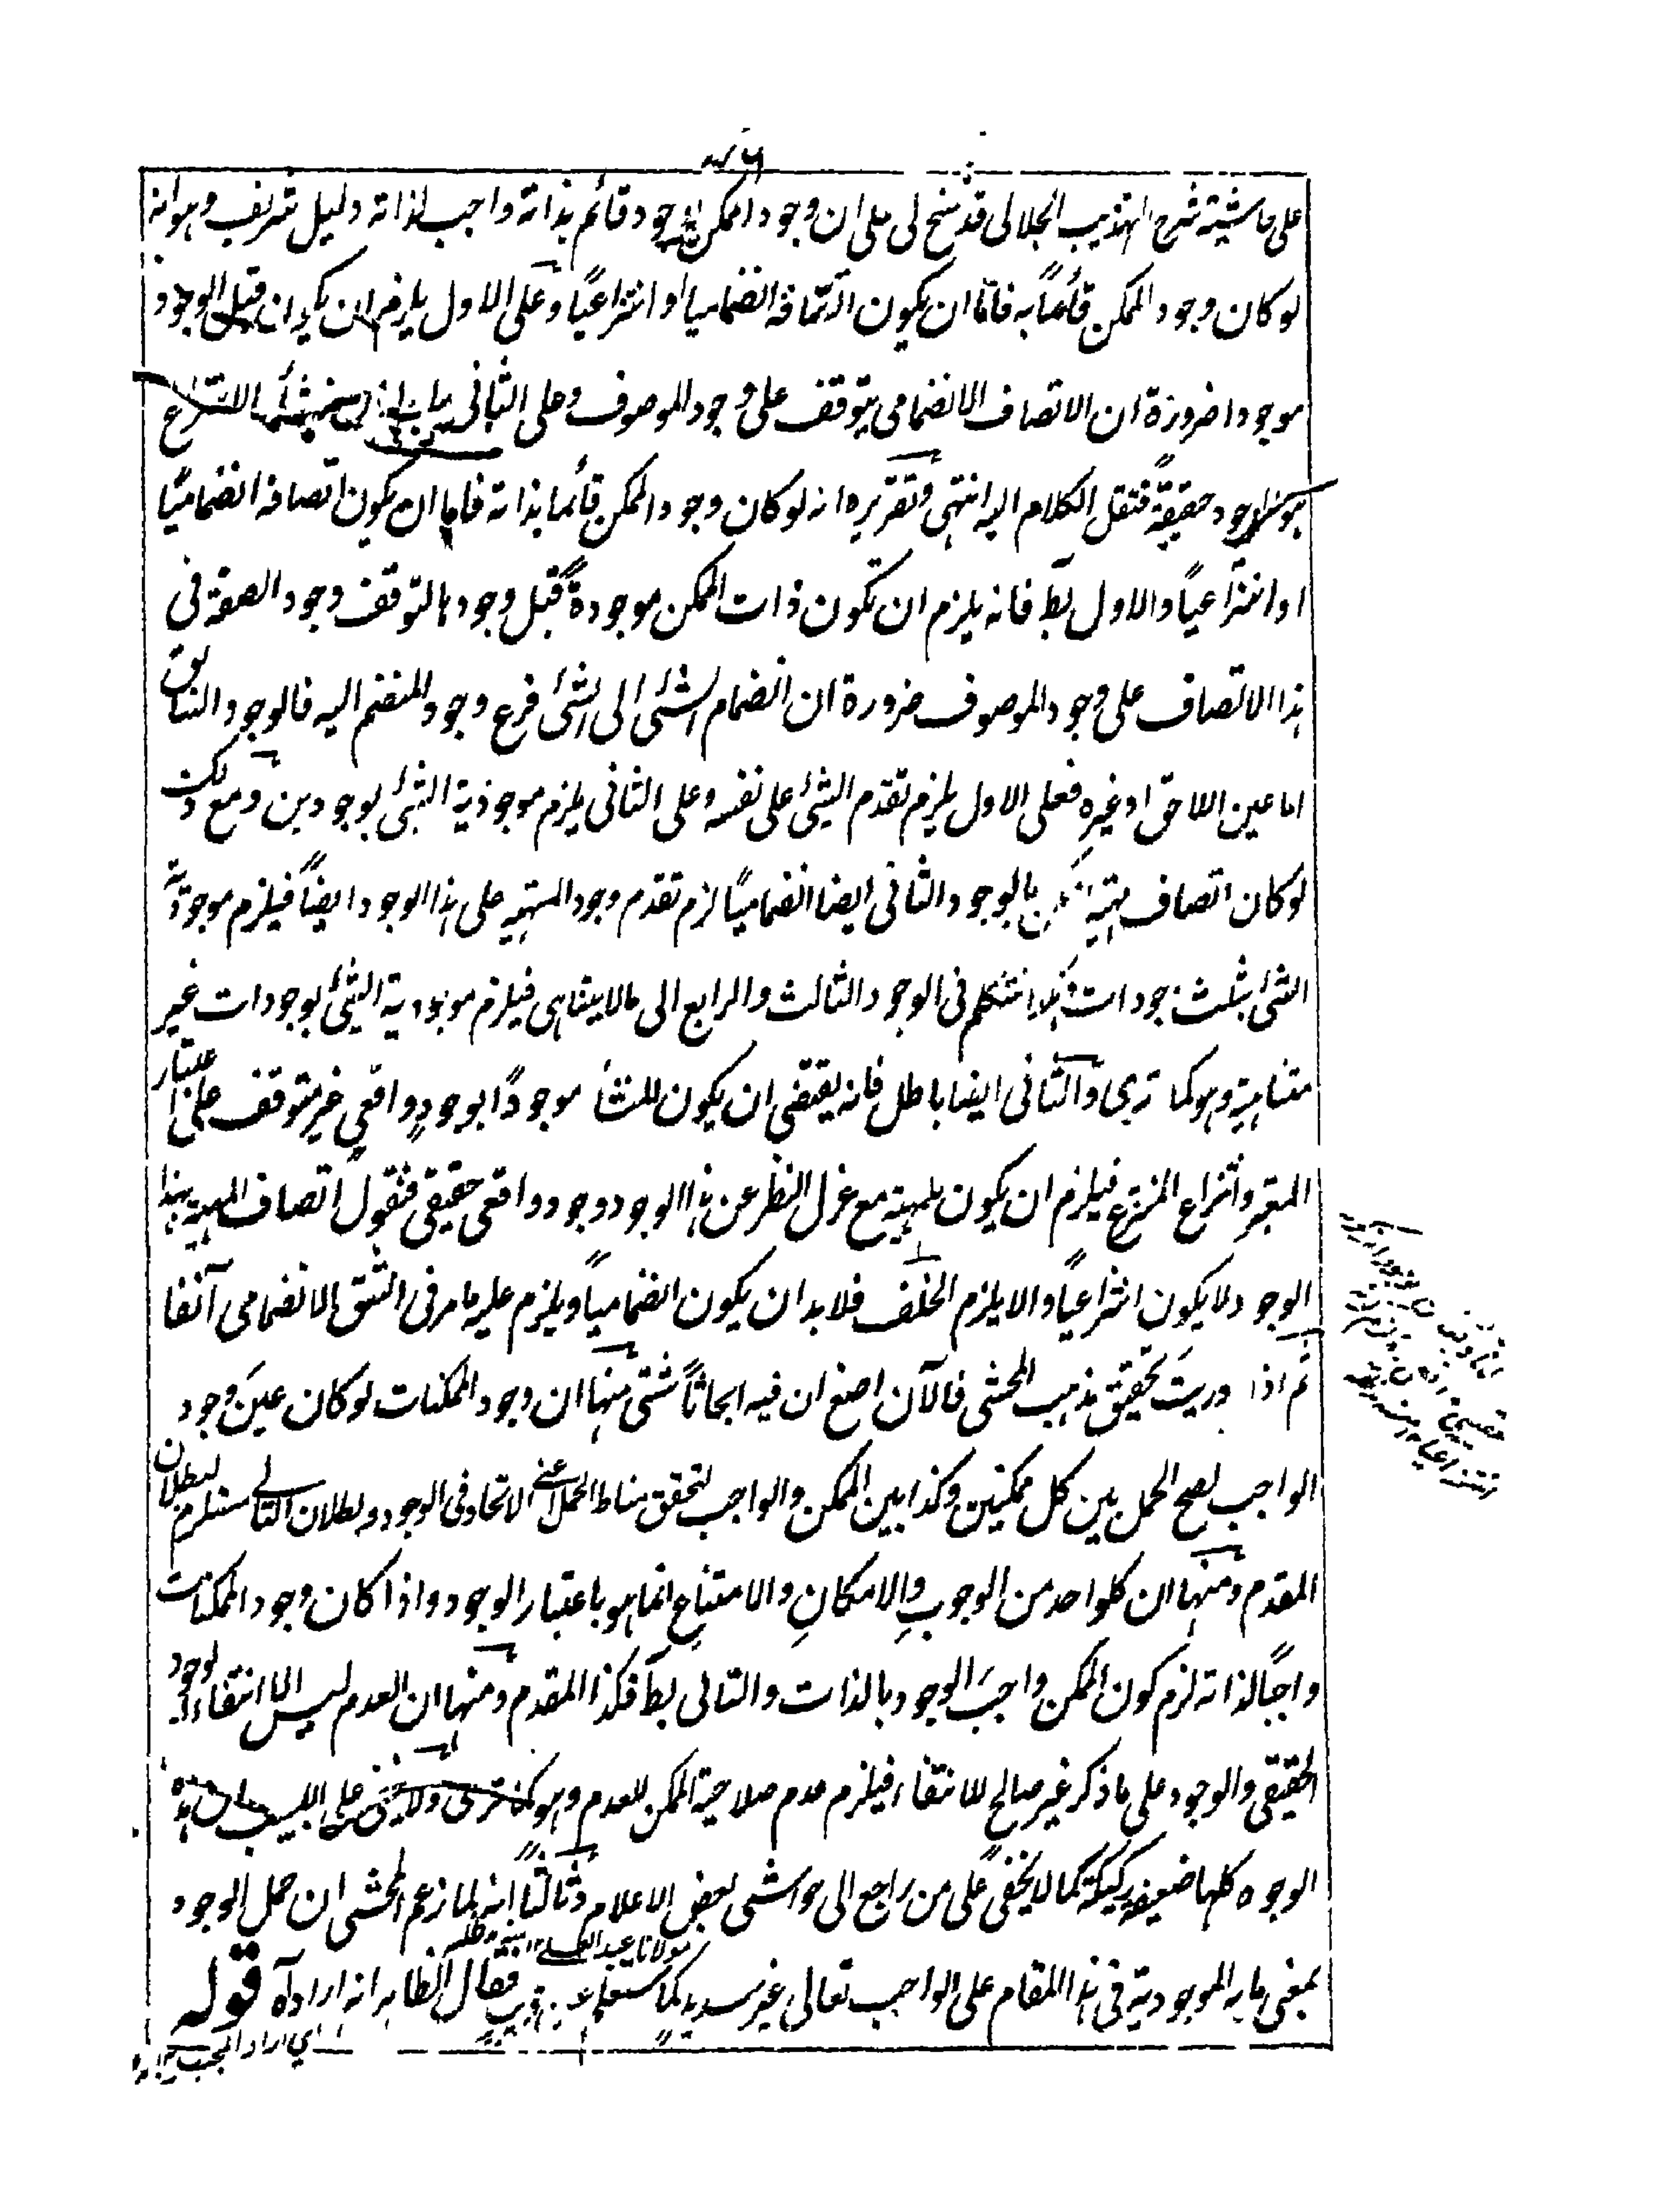 على حاشية شرح التهذيب الجلالى قد سنح لى على ان وجود الممكن وجود قائم بذاته واجب لذاته دليل شريف وهو انه
لو كان وجود الممكن قائما به فاما ان يكون اتصافه انضماميا او انتزاعيا وعلى الاول يلزم ان يكون قبل الوجود
موجودا ضرورة ان الاتصاف الانضمامى يتوقف على وجود الموصوف وعلى الثانى منشأ الانتزاع
هو الوجود حقيقة فننقل الكلام اليه انتهى وتقريره انه لو كان وجود الممكن قائما بذاته فاما ان يكون اتصافه انضماميا
او انتزاعيا والاول بط فانه يلزم ان تكون ذات الممكن موجودة قبل وجودها لتوقف وجود الصفة فى
هذا الاتصاف على وجود الموصوف ضرورة ان انضمام الشئ الى الشئ فرع وجود المنضم اليه فالوجود السابق
اما عين اللاحق او غيره فعلى الاول يلزم تقدم الشئ على نفسه وعلى الثانى يلزم موجودية الشئ بوجودين ومع ذلك
لو كان اتصاف مهية الممكن بالوجود الثانى ايضا انضماميا لزم تقدم وجود المهية على هذا الوجود ايضا فيلزم موجودية
الشئ بثلث وجودات وهكذا نتكلم فى الوجود الثالث والرابع الى مالا يتناهى فيلزم موجودية الشئ بوجودات غير
متناهية وهو كما ترى والثانى ايضا باطل فانه يقتضى ان يكون للمنشأ موجودا بوجود واقعى غير متوقف على اعتبار
المعتبر وانتزاع المنتزع فيلزم ان يكون للمهية مع عزل النظر عن هذا الوجود وجود واقعى حقيقى فنقول اتصاف المهية بهذا
الوجود لا يكون انتزاعيا والا يلزم الخلف فلا بد ان يكون انضماميا ويلزم عليه ما مر فى الشق الانضمامى آنفا
ثم اذا دريت تحقيق مذهب المحشى فالآن اصغ ان فيه ابحاثا شتى منها ان وجود الممكنات لو كان عين وجود
الواجب لصح الحمل بين كل ممكنين وكذا بين الممكن والواجب لتحقق مناط الحمل اعنى الاتحاد فى الوجود وبطلان التالى مستلزم لبطلان
المقدم ومنها ان كلواحد من الوجوب والامكان والامتناع انما هو باعتبار الوجود واذا كان وجود الممكنات
واجبا لذاته لزم كون الممكن واجب الوجود بالذات والتالى بط فكذا المقدم ومنها ان العدم ليس الا انتفاء الوجود
الحقيقى والوجود على ما ذكر غير صالح للانتفاء فيلزم عدم صلاحية الممكن للعدم وهو كما ترى ولا يخفى على اللبيب ان هذه
الوجوه كلها ضعيفة ركيكة كما لا يخفى على من راجع الى حواشى بعض الاعلام وثالثا انه لما زعم المحشى ان حمل الوجود
مولانا عبد العلى مد ظله
بمعنى ما به الموجودية فى هذا المقام على الواجب تعالى غير سديد كما ستعلم عن قريب فقال الظاهر انه اراد آه قوله
اي اراد المجيب